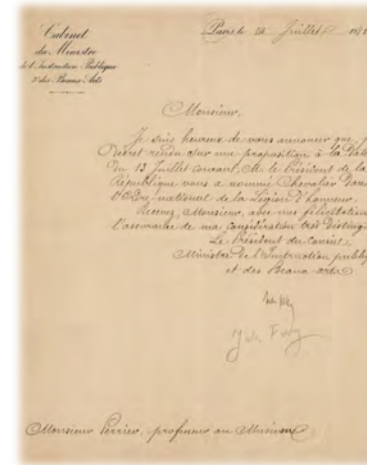 Cabinet
du Ministre
de l'Instruction Publique
& des Beaux-Arts
Paris le 14 Juillet 18
Monsieur,
Je suis heureux de vous annoncer que, p
Décret rendu sur ma proposition à la date
du 13 Juillet courant, M. le Président de la
République vous a nommé Chevalier dans
l'Ordre national de la Légion d'honneur.
Recevez, Monsieur, avec mes félicitations
l'assurance de ma considération très distingu
Le Président du conseil,
Ministre de l'Instruction publiq
et des Beaux-arts
Jules Ferry
Monsieur Perrier, professeur au Muséum